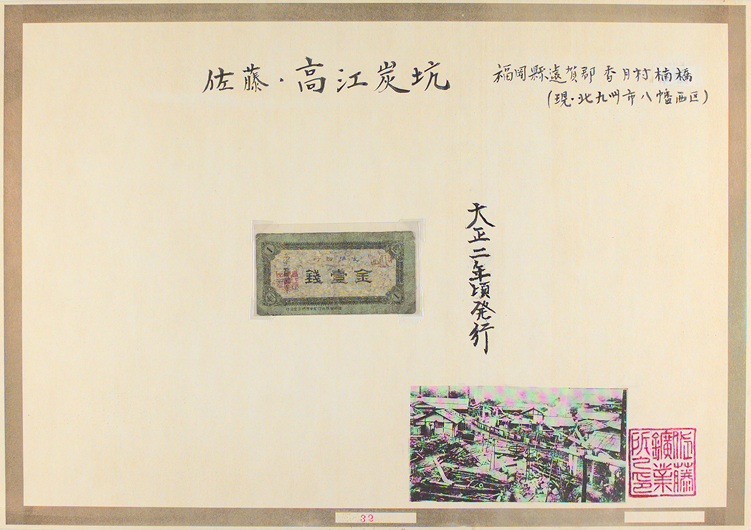 佐藤・高江炭坑
福岡縣遠賀郡香月村楠橋
(現・北九州市八幡西区)
大正二年頃発行
金壹錢
佐藤鑛業所之印
32